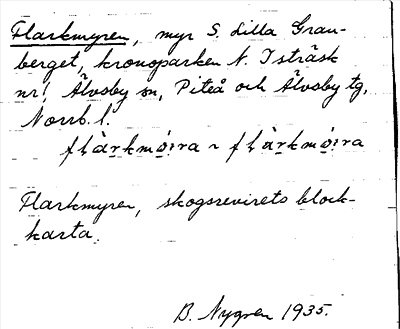 Flarkmyren, myr S. Lilla Gran-
berget, kronoparken N. Isträsk
nr 1 Älvsby sn, Piteå och Älvsby tg,
Norrb. l.
Flarkmyren, skogsrevirets block-
karta.
B. Nygren 1935.